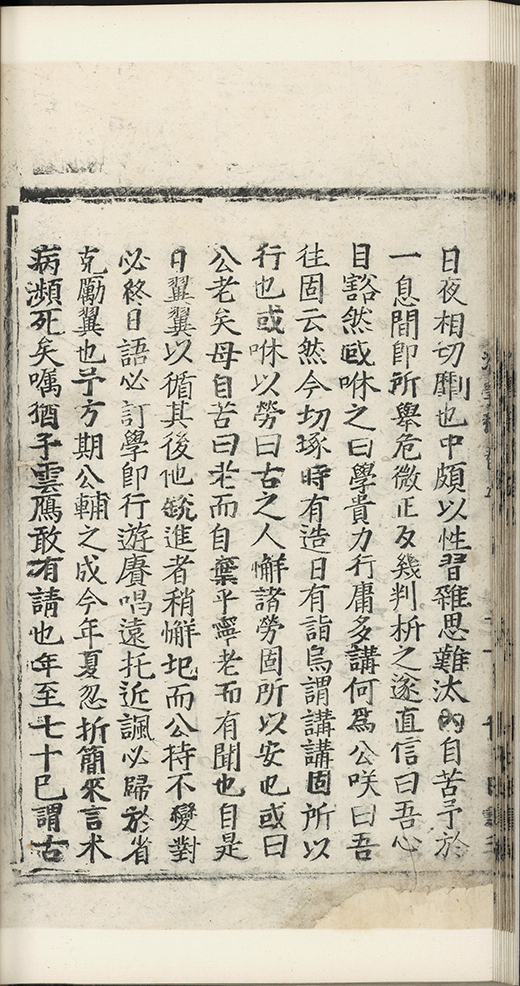 日夜相切劘也中頗以性習雜思難汰內自苦予於
一息間即所舉危微正反幾判析之遂直信曰吾心
目豁然或咻之曰學貴力行庸多講何爲公咲曰吾
徃固云然今切琢時有造日有詣烏謂講講固所以
行也或咻以勞曰古之人懈諸勞固所以安也或曰
公老矣毋自苦曰老而自棄乎寧老而有聞也自是
日翼翼以循其後他銳進者稍懈圯而公持不變對
必終日語必訂學即行遊賡唱遠托近諷必歸於省
克勵翼也予方期公輔之成今年夏忽折簡來言木
病瀕死矣囑猶子雲鴈敢有請也年至七十巳謂古